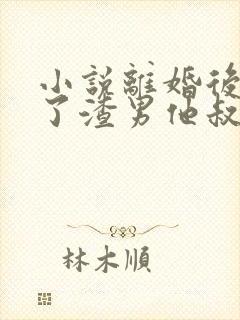 小說離婚後
了渣男他叔
林木順